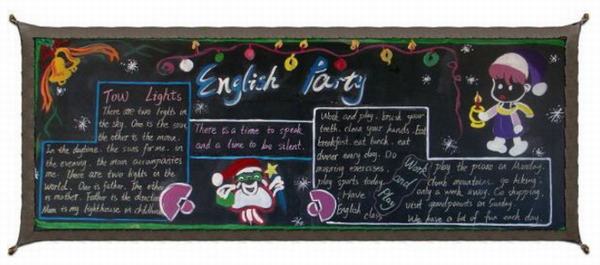 English Party
Tow Lights
There are two lights in
the sky. One is the sun,
the other is the moon.
In the daytime. the suns for me. in
the evening. the moon accompanies
me. There are two lights in the
world. One is father. The other
is mother. Father is the direction
Mom is my lighthouse in childhood
There is a time to speak
and a time to be silent.
Work and play. brush your
teeth. clean your hands. Eat
breakfast. eat lunch. eat
dinner every day. Do
morning exercises.
play sports today
Have
English
class
Work
and
Play
play the piano on Monday.
climb mountains. go hiking.
only a week away. Go shopping.
visit grandparents on Sunday.
We have a lot of fun each day.